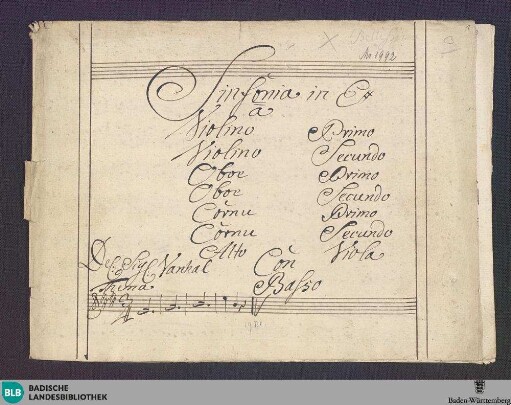 Sinfonia in C#
a
Violino Primo
Violino Secundo
Oboe Primo
Oboe Secundo
Cornu Primo
Cornu Secundo
Alto Viola
Del Sig Vanhal Con
Thema Basso
BLB BADISCHE
LANDESBIBLIOTHEK
Baden-Württemberg